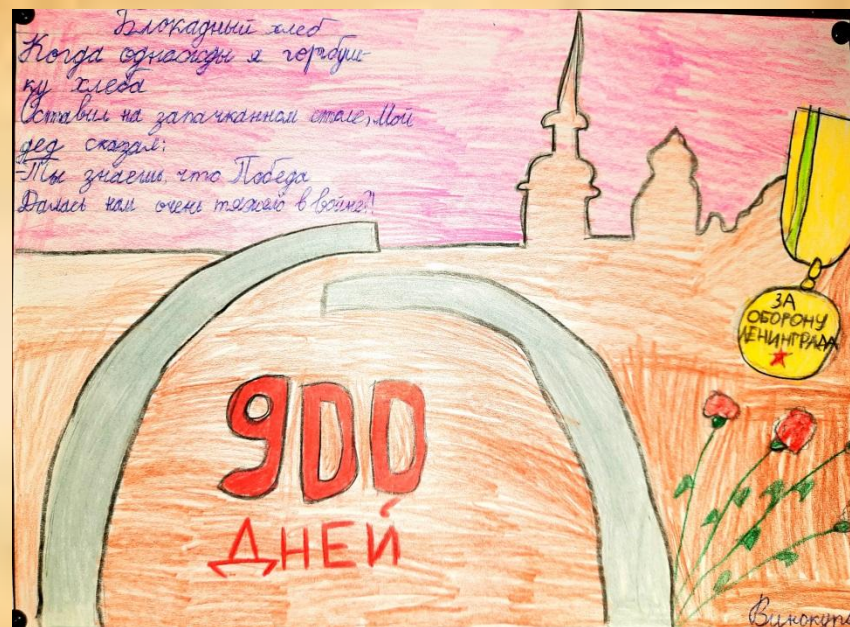 Блокадный хлеб
Когда однажды я горбуш-
ку хлеба
Оставил на запачканном столе, Мой
дед сказал:
-Ты знаешь, что Победа
Далась нам очень тяжело в войне?!
ЗА
ОБОРОНУ
ЛЕНИНГРАДА
900
ДНЕЙ